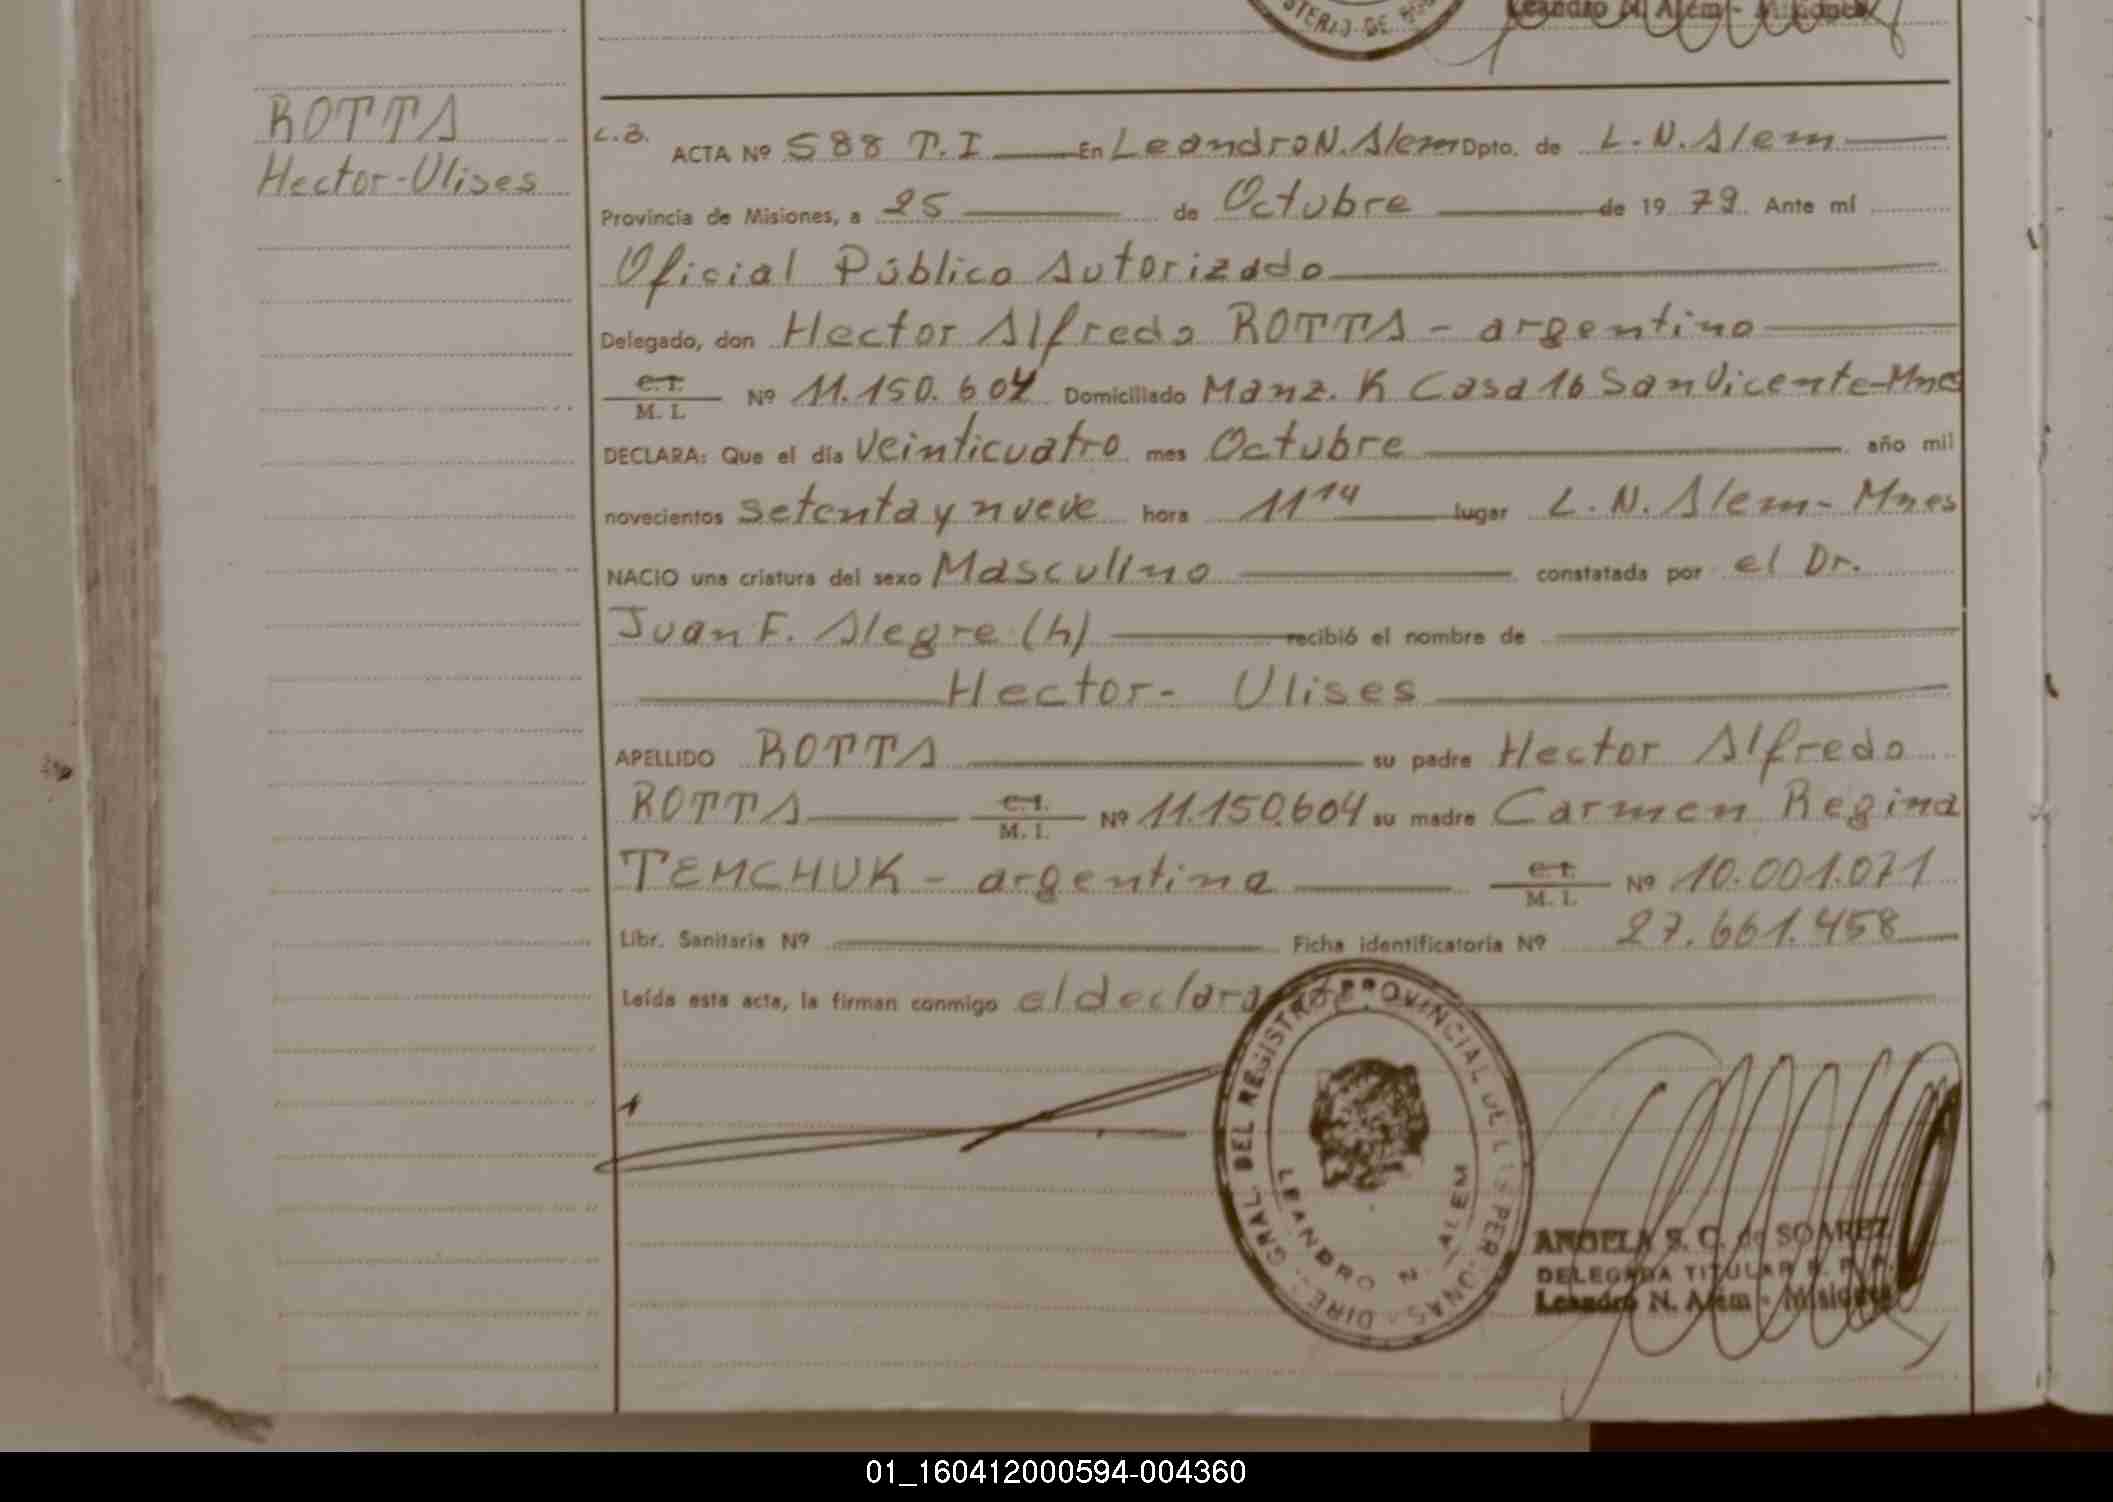 Leandro N. Alem - Misiones
ROTTA
Hector-Ulises
L.B. ACTA Nº 588 T.I En Leandro N. Alem Dpto. de L.N. Alem
Provincia de Misiones, a 25 de Octubre de 19 79 Ante mí
Oficial Público Autorizado
Delegado, don Hector Alfredo ROTTA - argentino
C.I. / M. I. Nº 11.150.604 Domiciliado Manz. K Casa 16 San Vicente-Mnes
DECLARA: Que el día veinticuatro mes Octubre año mil
novecientos setenta y nueve hora 11 14 lugar L.N. Alem- Mnes
NACIO una criatura del sexo Masculino constatada por el Dr.
Juan F. Alegre (h) recibió el nombre de
Hector- Ulises
APELLIDO ROTTA su padre Hector Alfredo
ROTTA C.I. / M. I. Nº 11.150.604 su madre Carmen Regina
TEMCHUK - argentina C.I. / M. I. Nº 10.001.071
Libr. Sanitaria Nº Ficha identificatoria Nº 27.661.458
Leída esta acta, la firman conmigo el declarante
DIREC. GRAL. DEL REGISTRO PROVINCIAL DE LAS PERSONAS
LEANDRO N. ALEM
ANGELA S. C. de SOAREZ
DELEGADA TITULAR R. P. P.
Leandro N. Alem - Misiones
01_160412000594-004360